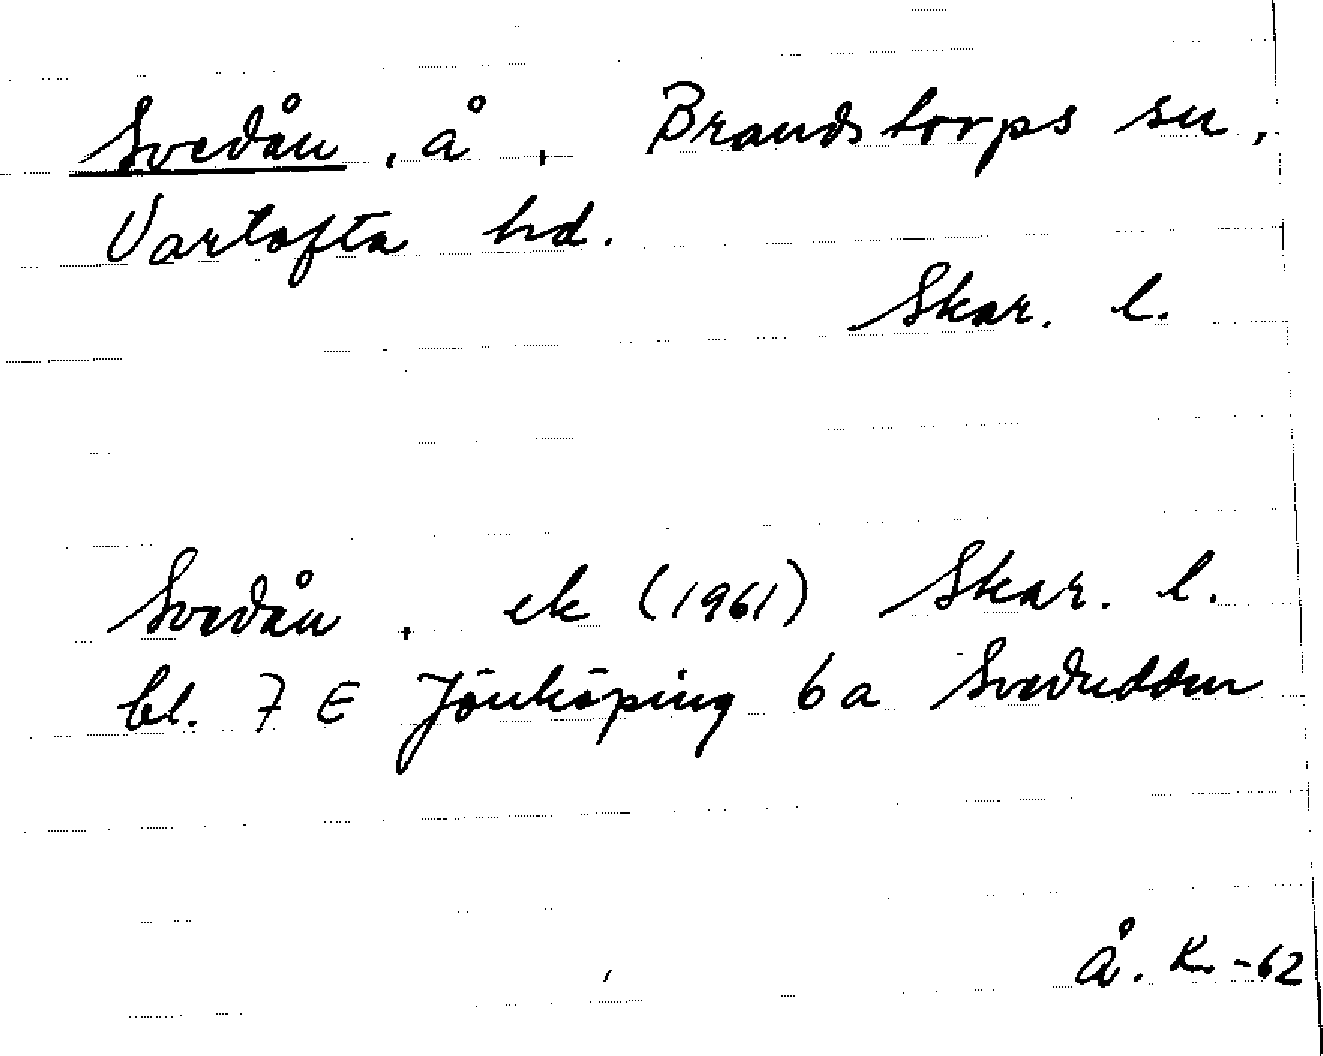 Svedån, å, Brandstorps sn,
Vartofta hd.
Skar. l.
Svedån, ek (1961) Skar. l.
bl. 7 E Jönköping 6 a Svedudden
Å. K. -62